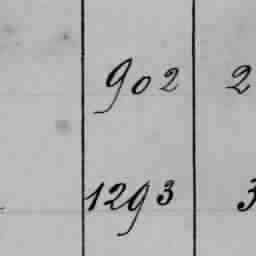 902 2
1293 3